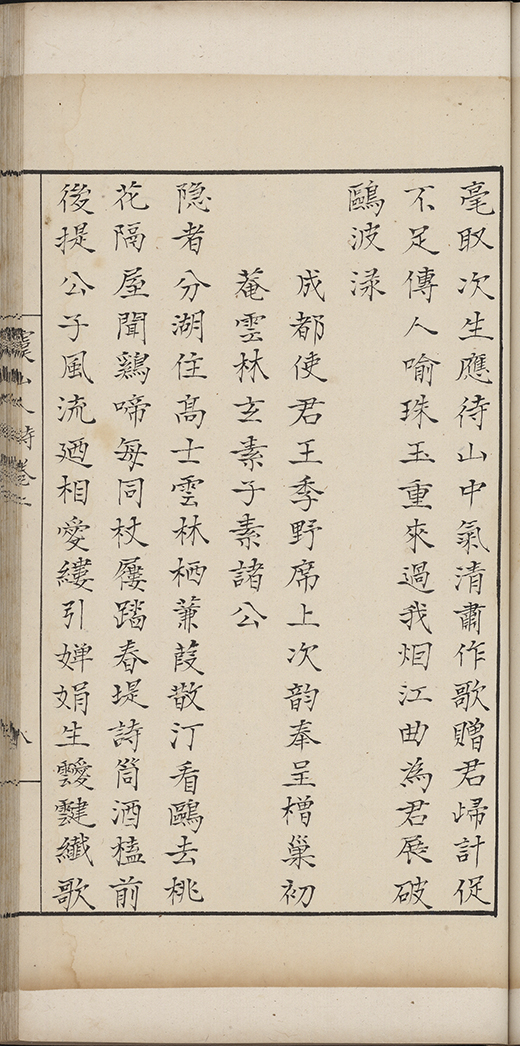 毫取次生應待山中氣清肅作歌贈君歸計促
不足傳人喻珠玉重來過我烟江曲為君展破
鷗波渌
成都使君王季野席上次韵奉呈橧巢初
菴雲林玄素子素諸公
隐者分湖住高士雲林栖蒹葭散汀看鷗去桃
花隔屋聞鷄啼每同杖屨踏春堤詩筒酒榼前
後提公子風流廼相愛縷引婵娟生靉靆纎歌